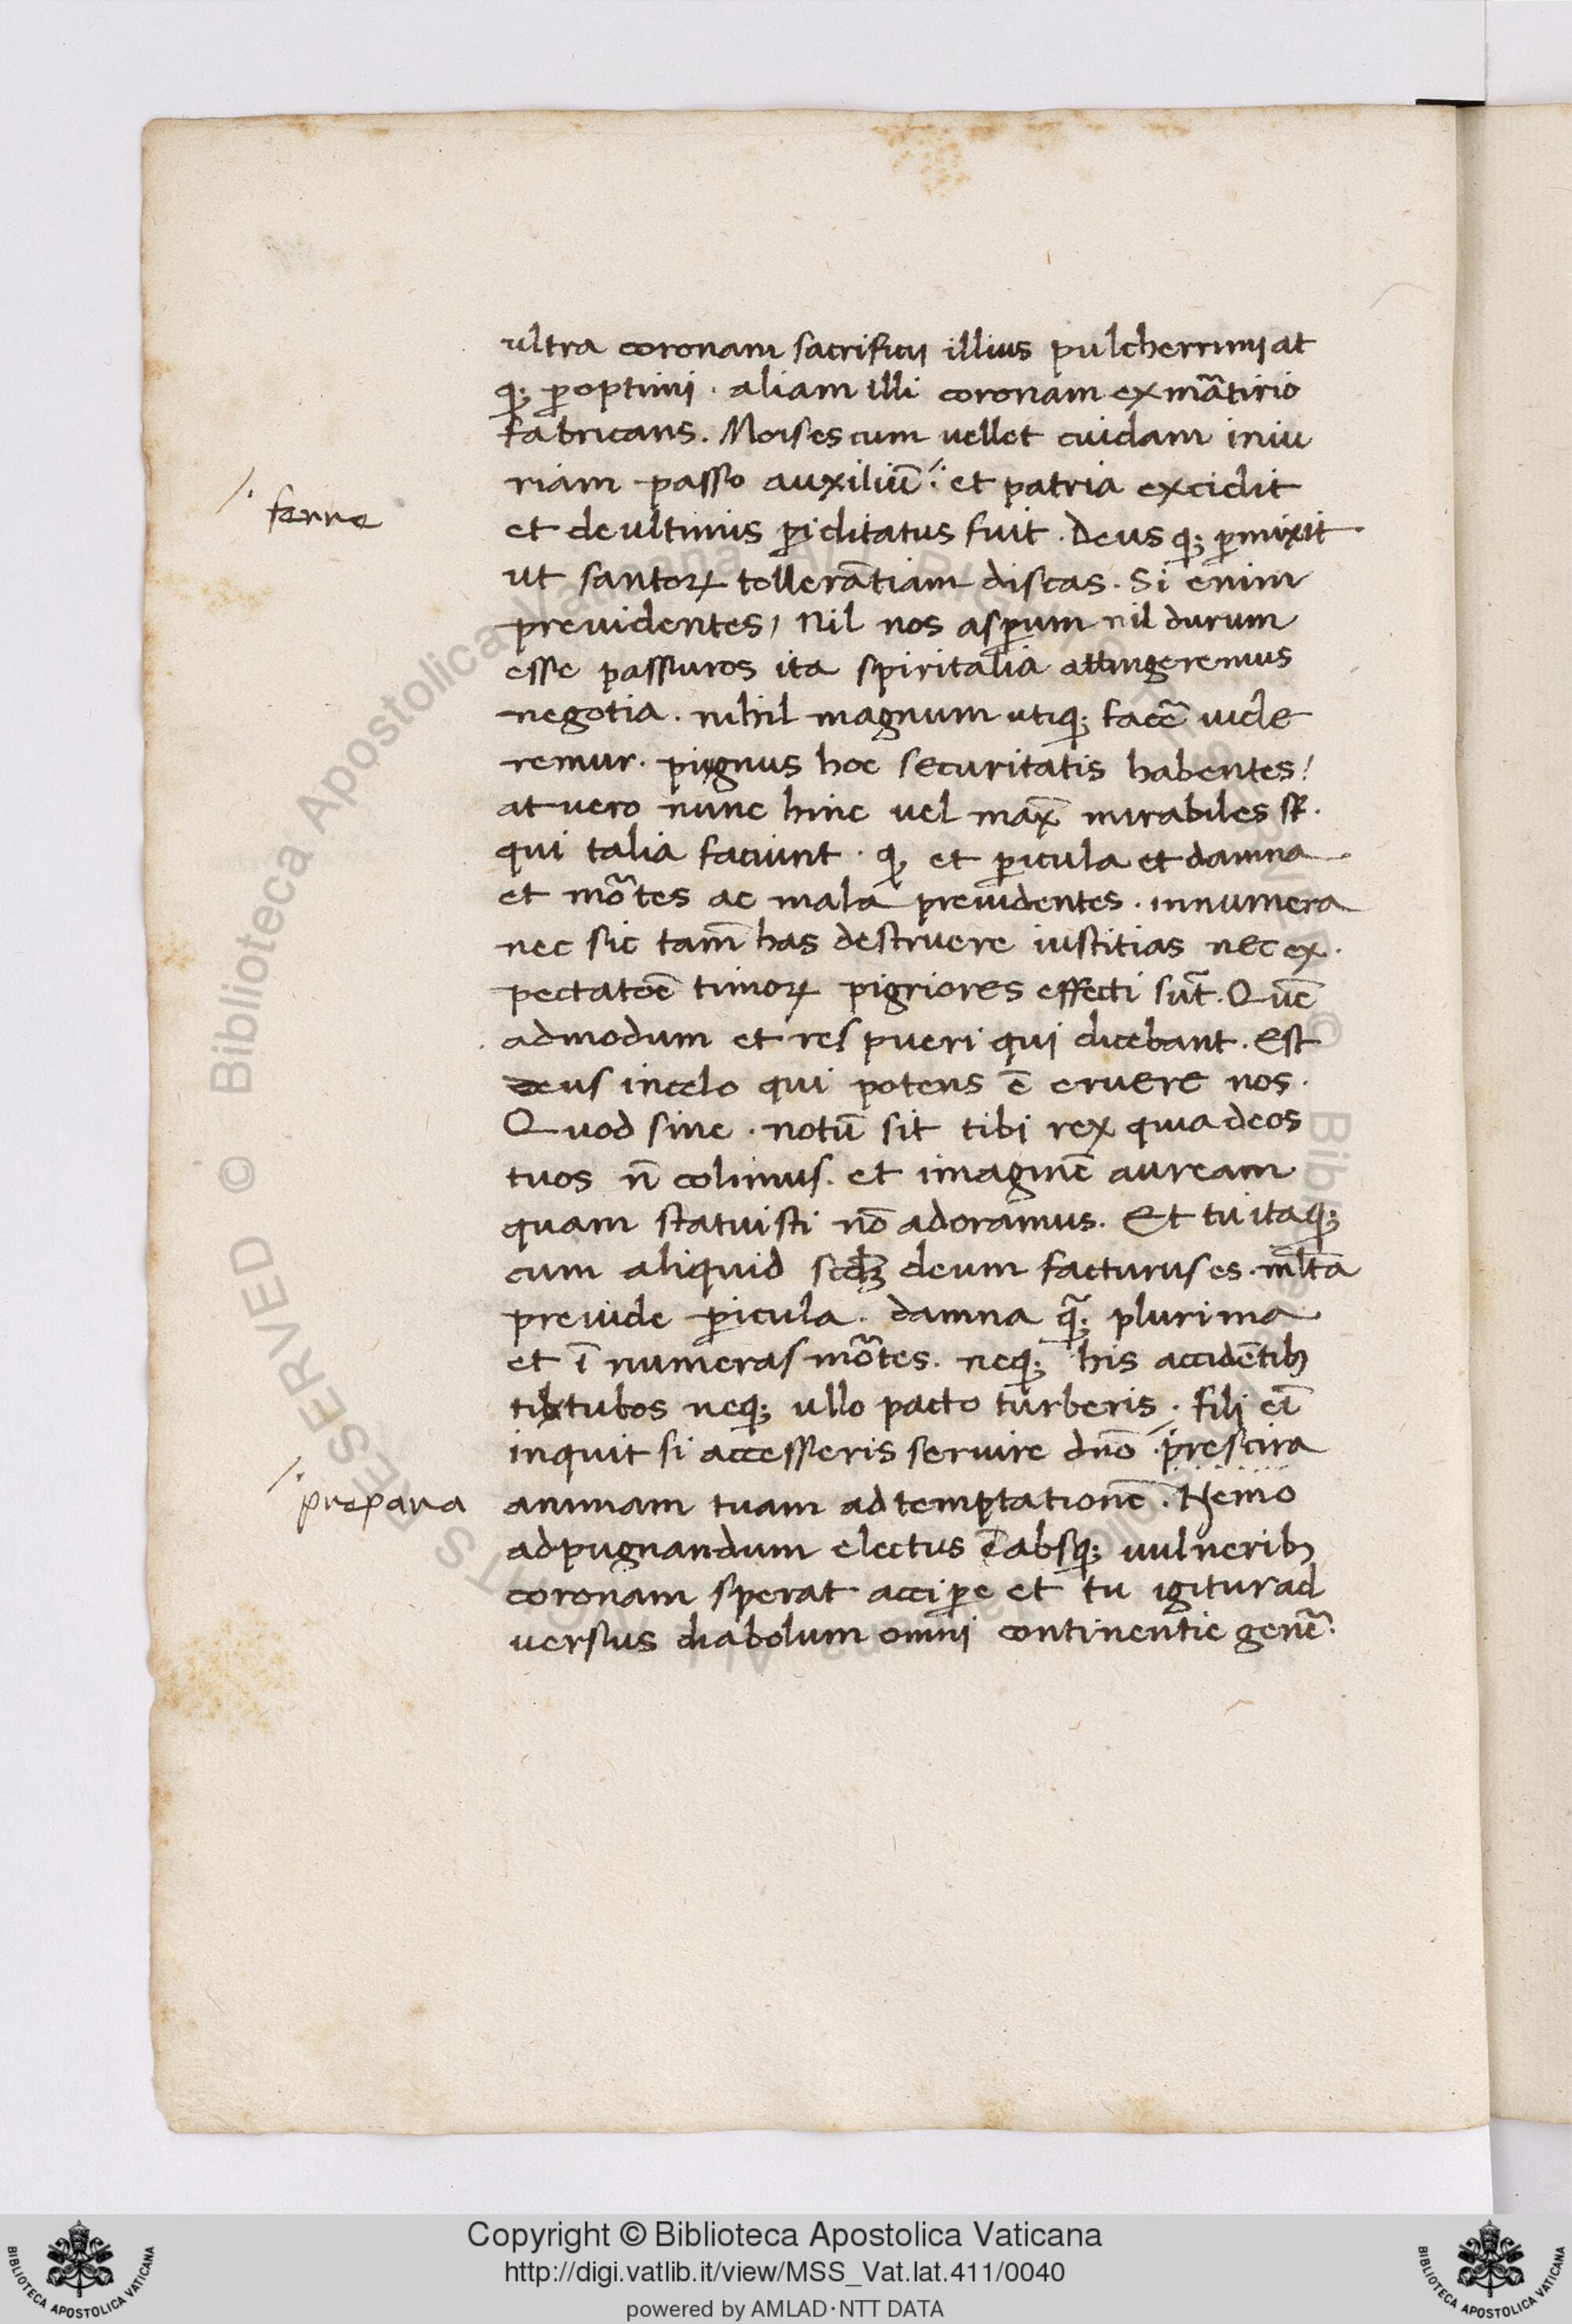 ultra coronam sacrificij illius pulcherrimi at
q; ꝑoptimi . aliam illi coronam ex mãtirio
fabricans. Moises cum uellet cuidam iniu
riam passo auxiliũ : et patria excidit
ferre
et de ultimis ꝑiclitatus fuit . Deus q; ꝑmixit
ut santoꝝ tollerãtiam discas. Si enim
preuidentes, nil nos asꝑum nil durum
esse passuros ita spiritalia attingeremus
negotia . nihil magnum utiq; facẽ uide
remur. pignus hoc securitatis habentes!
at uero nunc hinc uel max̃ mirabiles st̃.
qui talia faciunt . q; et ꝑicula et damna
et mõtes ac mala preuidentes . innumera
nec sic tam̃ has destruere iustitias nec ex
pectatõe timoꝝ pigriores effecti sũt. Quẽ
admodum et res pueri qui dicebant. Est
deus in celo qui potens ẽ eruere nos.
Quod sine . notũ sit tibi rex quia deos
tuos ñ colimus. et imaginẽ auream
quam statuisti nõ adoramus. Et tu itaq;
cum aliquid scdꝫ deum facturus es . ml̃ta
preuide ꝑicula . damna q̃; plurima
et ĩ numeras mõtes. neq; his accidẽtibꝫ
titubos neq; ullo pacto turberis . fili eĩ
inquit si accesseris seruire dño . prescira
prepara
animam tuam ad temptationẽ. Nemo
ad pugnandum electus ẽ absq; uulneribꝫ
coronam sperat acciꝑe et tu igitur ad
uersus diabolum omni continentie genẽ.
Copyright © Biblioteca Apostolica Vaticana
http://digi.vatlib.it/view/MSS_Vat.lat.411/0040
powered by AMLAD·NTT DATA
BIBLIOTECA APOSTOLICA VATICANA
BIBLIOTECA APOSTOLICA VATICANA